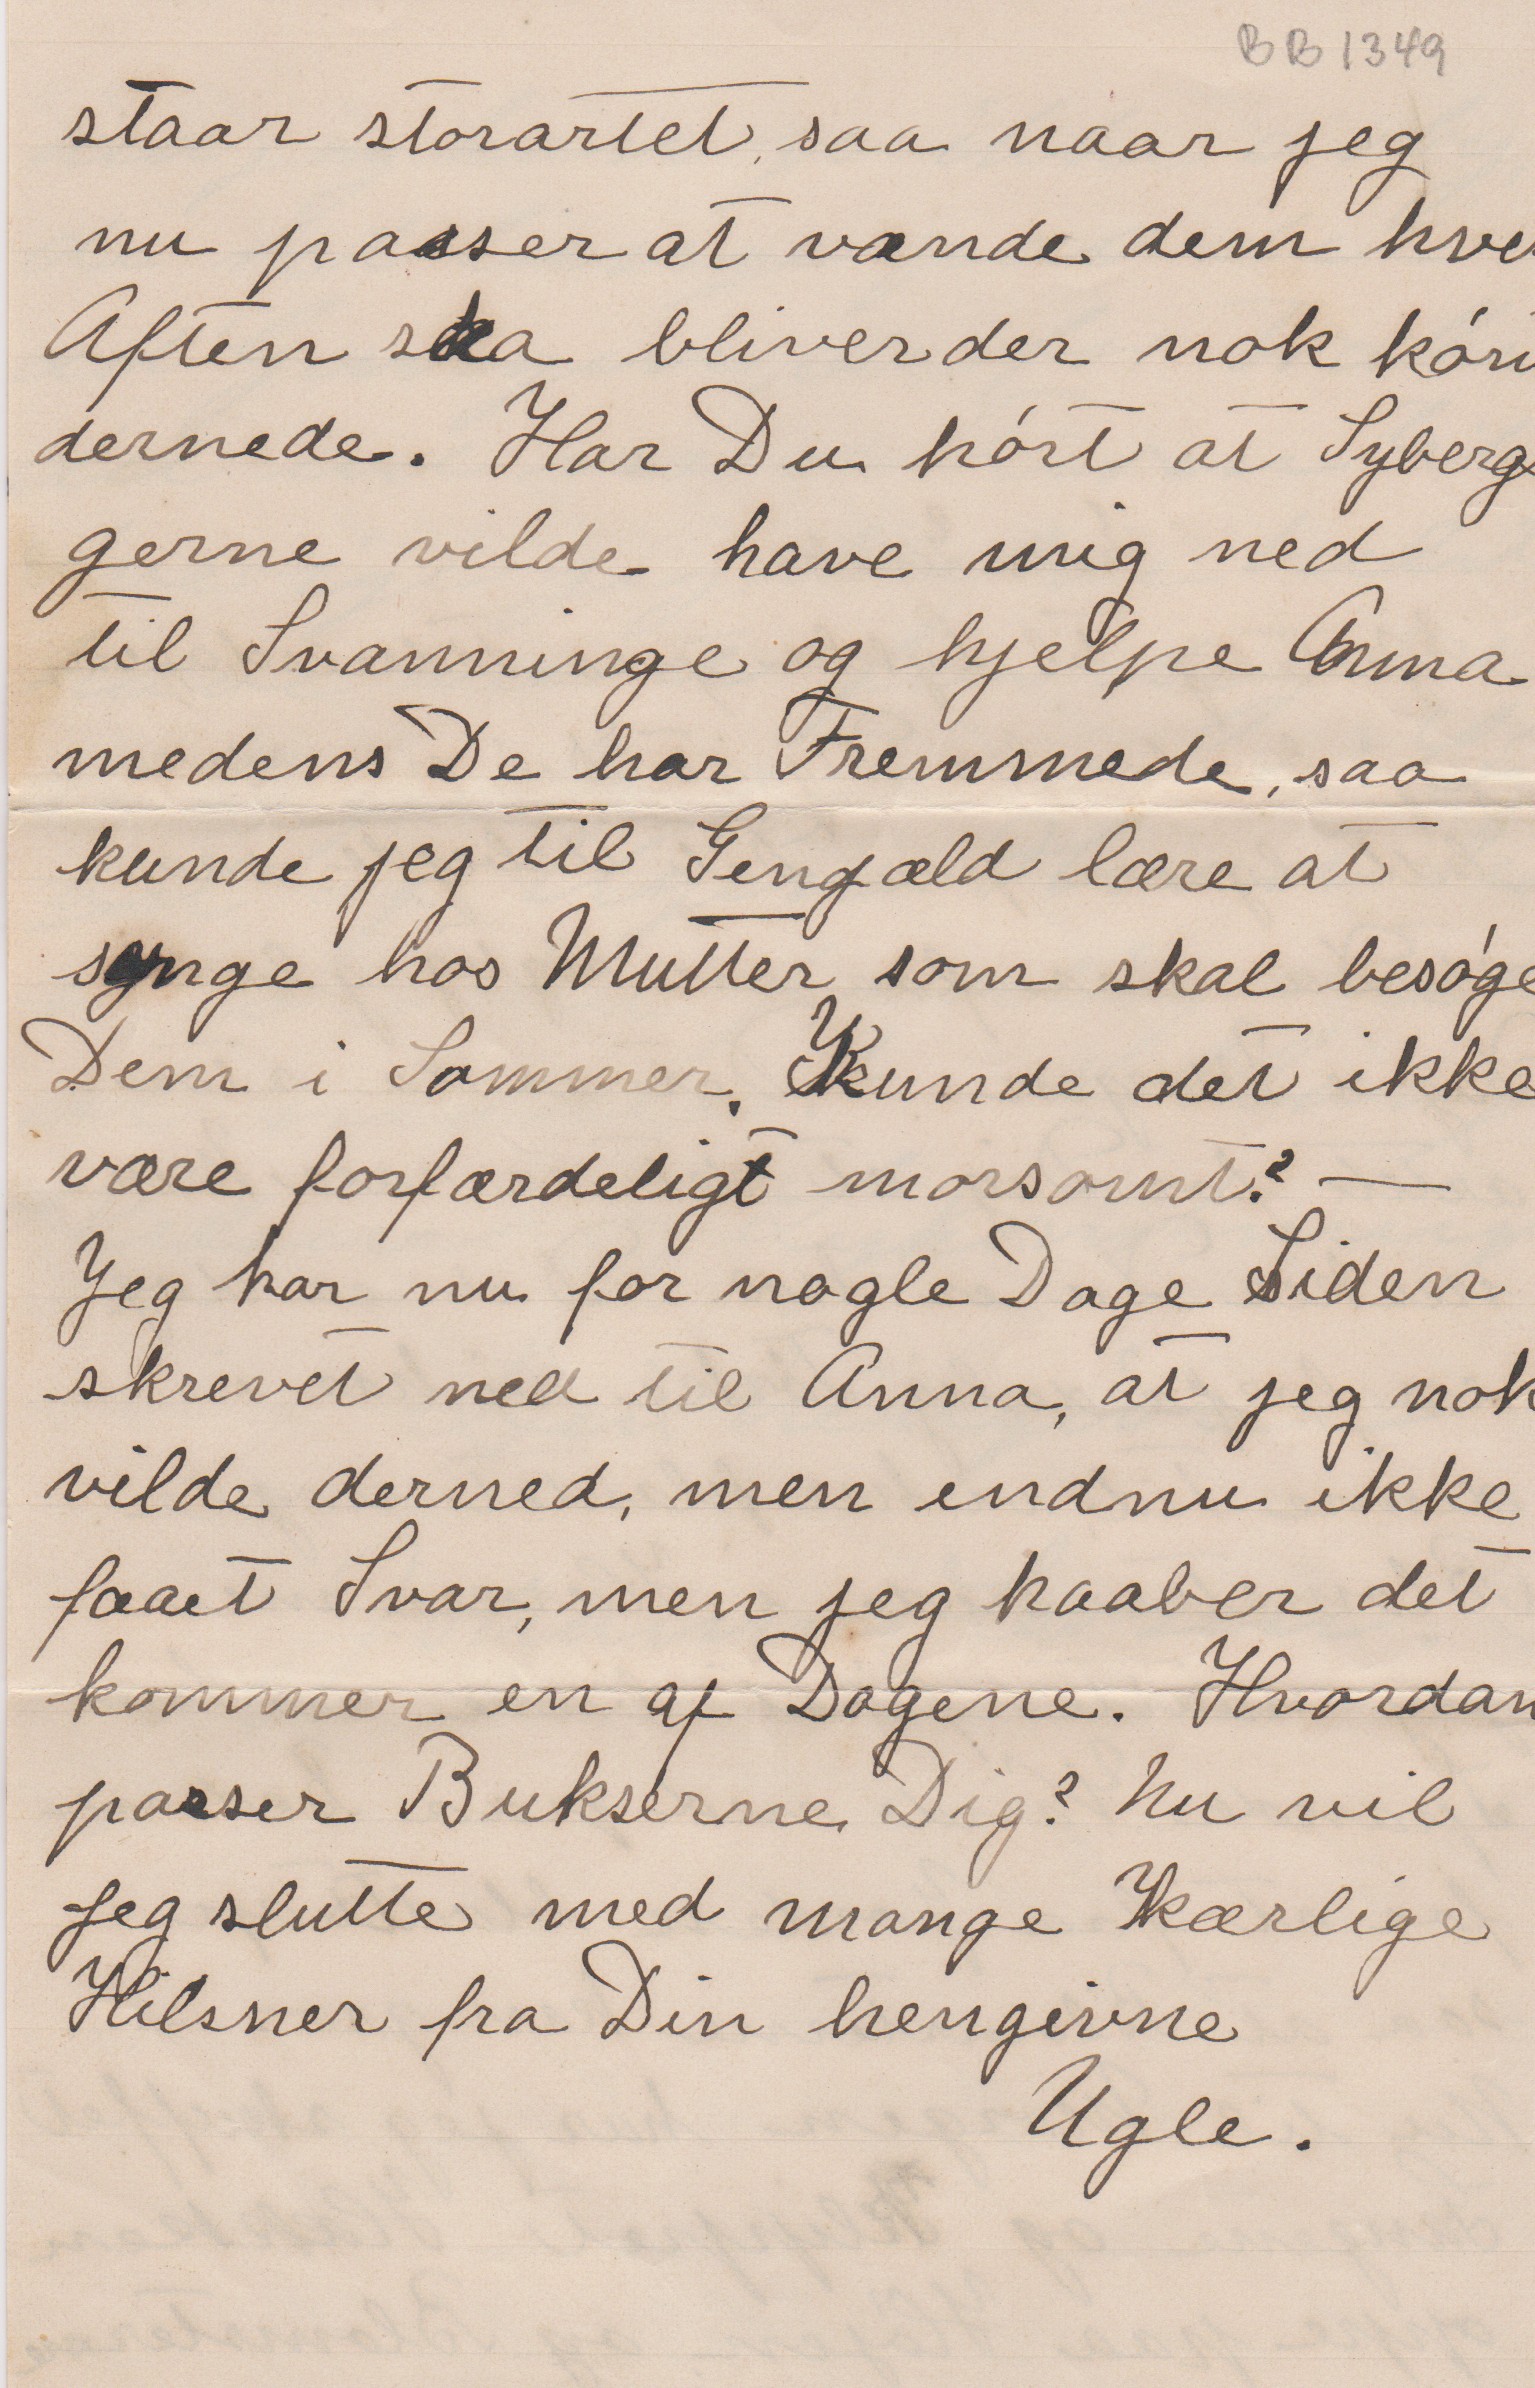 BB1349
staar storartet, saa naar jeg
nu passer at vænde dem hver
Aften saa bliver der nok kón
dernede. Har Du hórt at Syberg
gerne vilde have mig ned
til Svanninge og hjelpe Anna
medens De har Fremmede, saa
kunde jeg til Gengæld lære at
synge hos Mutter som skal besóge
Dem i Sommer. Kunde det ikke
være forfærdeligt morsomt? —
Jeg har nu for nogle Dage Siden
skrevet ned til Anna, at jeg nok
vilde derned, men endnu ikke
faaet Svar, men jeg haaber det
kommer en af Dagene. Hvordan
passer Bukserne Dig? Nu vil
jeg slutte med mange Kærlige
Hilsner fra Din hengivne
Ugle.